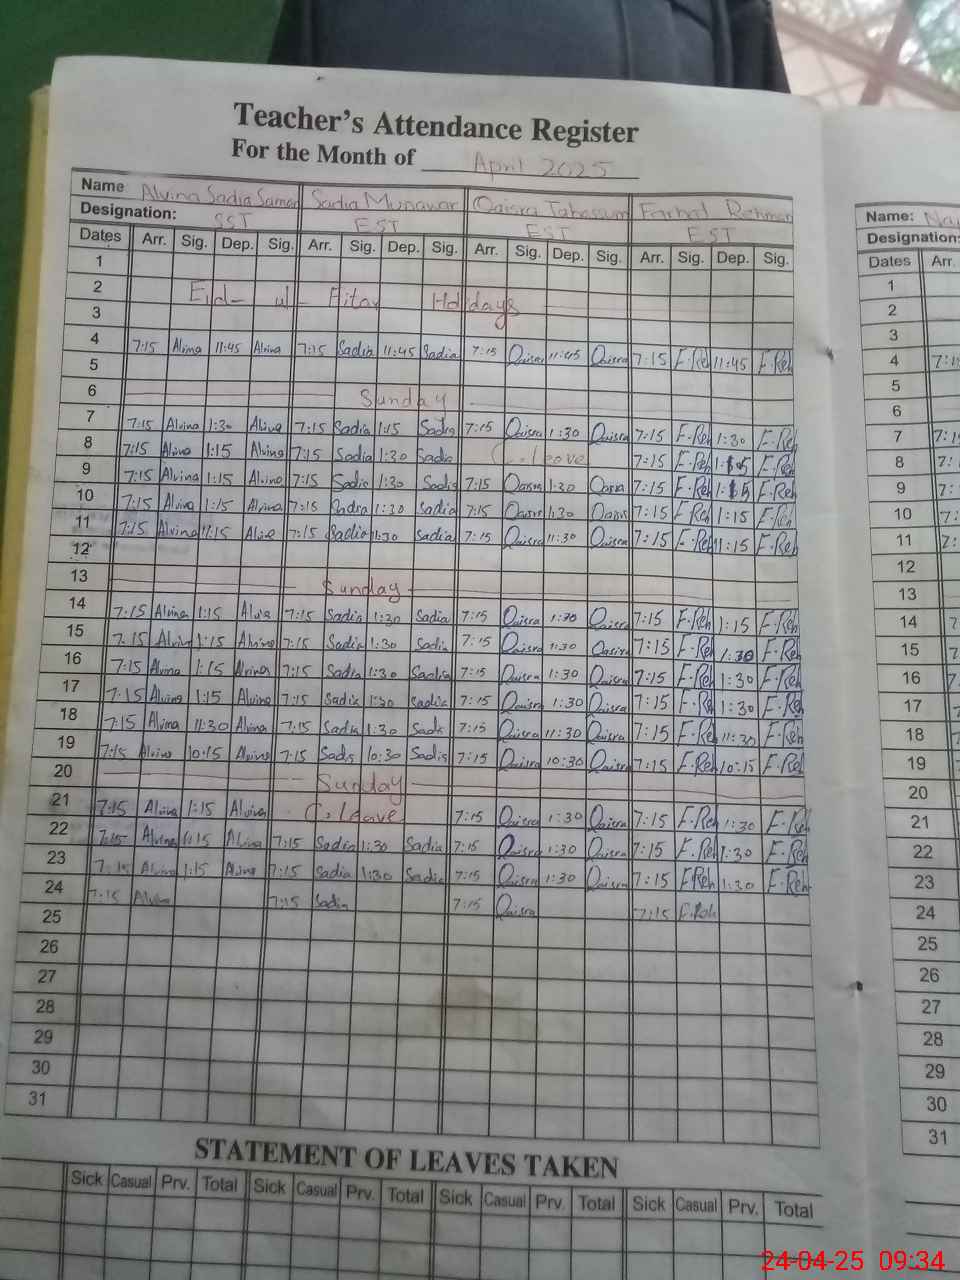 Teacher's Attendance Register
For the Month of April 2025
Name Alvina Sadia Samad Sadia Munawar Qaisra Tabassum Farhat Rehman Name: Na
Designation: SST EST EST EST Designation:
Dates Arr. Sig. Dep. Sig. Arr. Sig. Dep. Sig. Arr. Sig. Dep. Sig. Arr. Sig. Dep. Sig. Dates Arr.
1 1
2 Eid-ul-Fitar Holidays 2
3 3
4 7:15 Alvina 11:45 Alvina 7:15 Sadia 11:45 Sadia 7:15 Qaisra 11:45 Qaisra 7:15 F.Reh 11:45 F.Reh 4
5 5
6 Sunday 6
7 7:15 Alvina 1:30 Alvina 7:15 Sadia 1:15 Sadia 7:15 Qaisra 1:30 Qaisra 7:15 F.Reh 1:30 F.Reh 7
8 7:15 Alvina 1:15 Alvina 7:15 Sadia 1:30 Sadia C.leave 7:15 F.Reh F.Reh 8
9 7:15 Alvina 1:15 Alvina 7:15 Sadia 1:30 Sadia 7:15 Qaisra 1:30 Qaisra 7:15 F.Reh F.Reh 9
10 7:15 Alvina 1:15 Alvina 7:15 Sadia 1:30 Sadia 7:15 Qaisra 1:30 Qaisra 7:15 F.Reh 1:15 F.Reh 10
11 7:15 Alvina 11:15 Alvina 7:15 Sadia 11:30 Sadia 7:15 Qaisra 11:30 Qaisra 7:15 F.Reh 11:15 F.Reh 11
12 12
13 Sunday 13
14 7:15 Alvina 1:15 Alvina 7:15 Sadia 1:30 Sadia 7:15 Qaisra 1:30 Qaisra 7:15 F.Reh 1:15 F.Reh 14
15 7:15 Alvina 1:15 Alvina 7:15 Sadia 1:30 Sadia 7:15 Qaisra 1:30 Qaisra 7:15 F.Reh 1:30 F.Reh 15
16 7:15 Alvina 1:15 Alvina 7:15 Sadia 1:30 Sadia 7:15 Qaisra 1:30 Qaisra 7:15 F.Reh 1:30 F.Reh 16
17 7:15 Alvina 1:15 Alvina 7:15 Sadia 1:30 Sadia 7:15 Qaisra 1:30 Qaisra 7:15 F.Reh 1:30 F.Reh 17
18 7:15 Alvina 11:30 Alvina 7:15 Sadia 11:30 Sadia 7:15 Qaisra 11:30 Qaisra 7:15 F.Reh 11:30 F.Reh 18
19 7:15 Alvina 10:15 Alvina 7:15 Sadia 10:30 Sadia 7:15 Qaisra 10:30 Qaisra 7:15 F.Reh 10:15 F.Reh 19
20 Sunday 20
21 7:15 Alvina 1:15 Alvina C.Leave 7:15 Qaisra 1:30 Qaisra 7:15 F.Reh 1:30 F.Reh 21
22 7:15 Alvina 1:15 Alvina 7:15 Sadia 1:30 Sadia 7:15 Qaisra 1:30 Qaisra 7:15 F.Reh 1:30 F.Reh 22
23 7:15 Alvina 1:15 Alvina 7:15 Sadia 1:30 Sadia 7:15 Qaisra 1:30 Qaisra 7:15 F.Reh 1:30 F.Reh 23
24 7:15 Alvina 7:15 Sadia 7:15 Qaisra 7:15 F.Reh 24
25 25
26 26
27 27
28 28
29 29
30 30
31 31
STATEMENT OF LEAVES TAKEN
Sick Casual Prv. Total Sick Casual Prv. Total Sick Casual Prv. Total Sick Casual Prv. Total
24-04-25 09:34